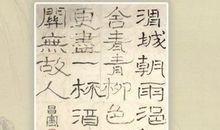 渭城朝雨浥
舍青青柳色
更盡一杯酒
關無故人